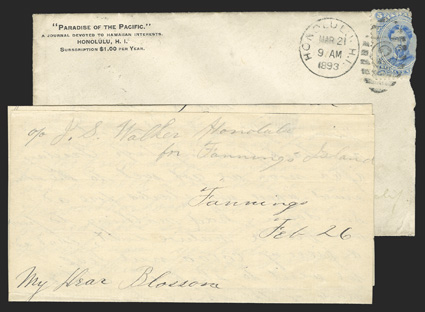 "PARADISE OF THE PACIFIC."
A JOURNAL DEVOTED TO HAWAIIAN INTERESTS.
HONOLULU, H. I.
SUBSCRIPTION $1.00 PER YEAR.
HONOLULU. H.I.
MAR 21
9 AM
1893
c/o J. S. Walker Honolulu
for Fanning's Island
Fannings
Feb 26
My Dear Blossom